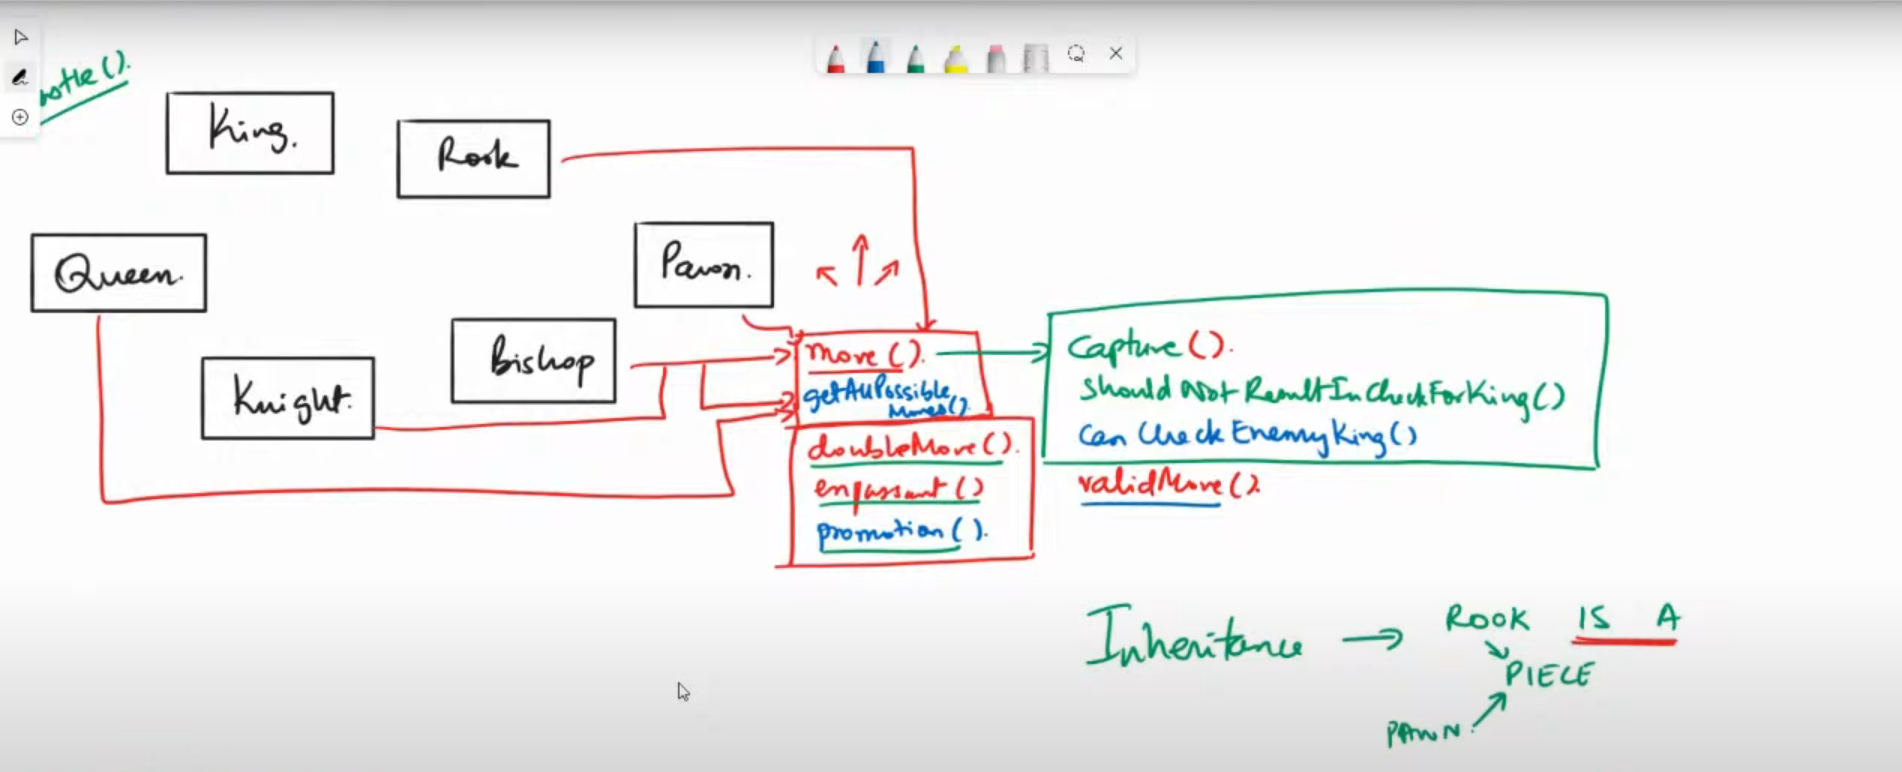 King.
Rook
Queen.
Pawn.
Bishop
Knight.
move().
getAllPossible
Moves().
doubleMove().
enpassant()
promotion().
Capture().
ShouldNotResultInCheckForKing()
Can Check EnemyKing()
validMove().
Inheritance → ROOK IS A
PIECE
PAWN.